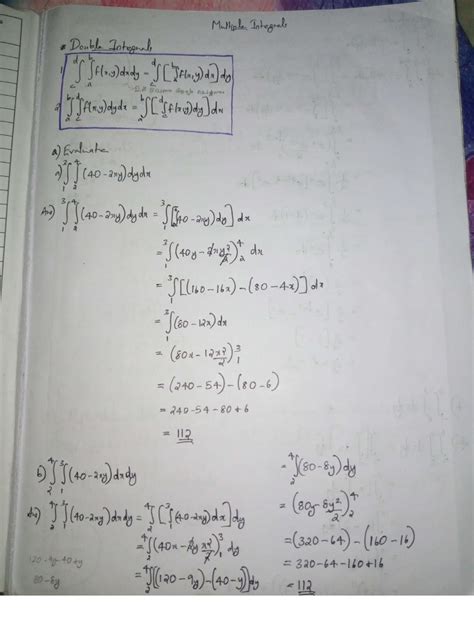 Multiple Integrals
* Double Integrals
1. ∫_c^d ∫_a^b f(x,y)dxdy = ∫_c^d [∫_a^b f(x,y)dx]dy
2. ∫_a^b ∫_c^d f(x,y)dydx = ∫_a^b [∫_c^d f(x,y)dy]dx
a) Evaluate
a) ∫_1^3 ∫_2^4 (40-2xy)dydx
Ans) ∫_1^3 ∫_2^4 (40-2xy)dydx = ∫_1^3 [∫_2^4 (40-2xy)dy] dx
= ∫_1^3 (40y - 2x y²/2)_2^4 dx
= ∫_1^3 [(160-16x)-(80-4x)] dx
= ∫_1^3 (80-12x)dx
= (80x - 12x²/2)_1^3
= (240-54)-(80-6)
= 240-54-80+6
= 112
b) ∫_2^4 ∫_1^3 (40-2xy)dxdy
Ans) ∫_2^4 ∫_1^3 (40-2xy)dxdy = ∫_2^4 [∫_1^3 (40-2xy)dx]dy
= ∫_2^4 (40x - 2y x²/2)_1^3 dy
= ∫_2^4 [(120-9y)-(40-y)]dy
120-9y-40+y
80-8y
= ∫_2^4 (80-8y)dy
= (80y - 8y²/2)_2^4
= (320-64)-(160-16)
= 320-64-160+16
= 112